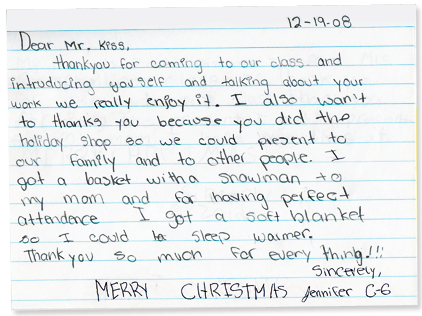 12-19-08
Dear Mr. Kiss,
thankyou for coming to our class and
introducing youself and talking about your
work we really enjoy it. I also wan't
to thanks you because you did the
holiday shop so we could present to
our family and to other people. I
got a basket with a snowman to
my mom and for having perfect
attendence I got a soft blanket
so I could sleep waimer.
Thank you so much for every thing!!!
Sincerely,
MERRY CHRISTMAS Jennifer C-6